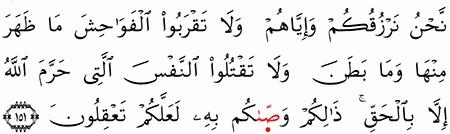 نَّحْنُ نَرْزُقُكُمْ وَإِيَّاهُمْ ۖ وَلَا تَقْرَبُوا۟ ٱلْفَوَٰحِشَ مَا ظَهَرَ
مِنْهَا وَمَا بَطَنَ ۖ وَلَا تَقْتُلُوا۟ ٱلنَّفْسَ ٱلَّتِى حَرَّمَ ٱللَّهُ
إِلَّا بِٱلْحَقِّ ۚ ذَٰلِكُمْ وَصَّىٰكُم بِهِۦ لَعَلَّكُمْ تَعْقِلُونَ ١٥١